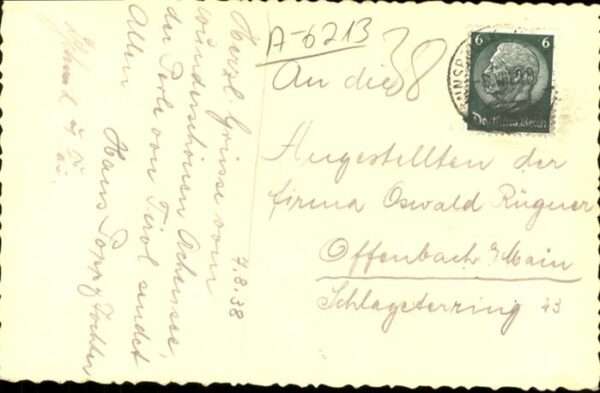 A-6213
38
6 6
Deutsches Reich
An die
Angestellten der
Firma Oswald Rügner
Offenbach a/Main
Schlageterring 43
7.8.38
Herzl. Grüsse vom
wunderschönen Achensee,
der Perle von Tirol sendet
Allen
Hans
Tochter